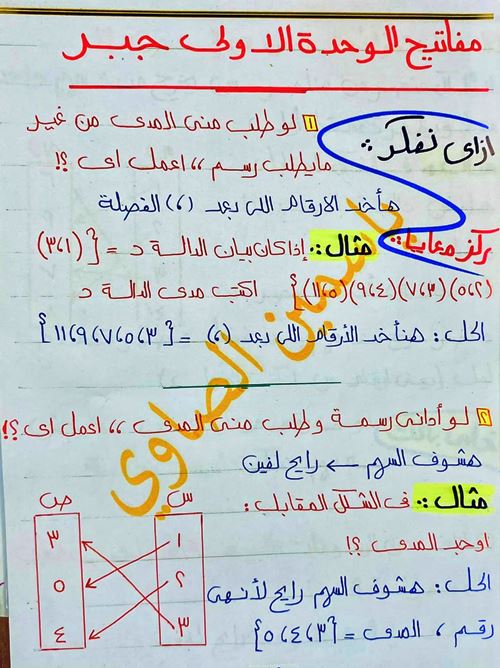 مفاتيح الوحدة الاولى جبر
ازاى نفكر:
ركز معايا:
١ لو طلب منى المدى من غير
مايطلب رسم ,, اعمل اى ؟!
هأخد الارقام اللى بعد (،) الفصلة
مثال: إذا كان بيان الدالة د = {(١،٣)
(٢،٥)(٣،٧)(٤،٩)(٥،١١)} اكتب مدى الدالة د
الحل: هنأخد الأرقام اللى بعد (،) = {٣،٥،٧،٩،١١}
٢ لو أدانى رسمة وطلب منى المدى ,, اعمل اى ؟!
هشوف السهم ← رايح لفين
مثال: فى الشكل المقابل:
اوجد المدى ؟!
الحل: هشوف السهم رايح لأنهى
رقم ، المدى = {٣،٤،٥}
س ص
١ ٣
٢ ٥
٣ ٤
ياسمين الصاوي